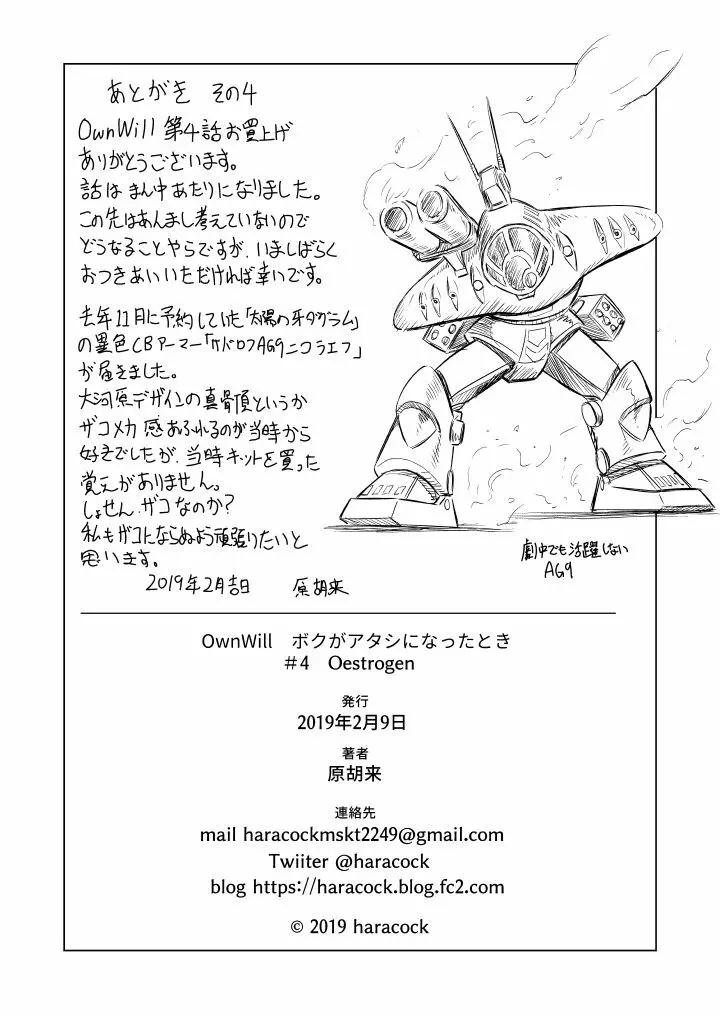 あとがき その4
OwnWill 第4話お買上げ
ありがとうございます。
話は まん中あたりになりました。
この先はあんまし考えていないので
どうなることやらですが、いましばらく
おつきあいいただければ幸いです。
去年11月に予約していた「太陽の牙ダグラム」
の異色CBアーマー「ケドロフAG9ニコラエフ」
が届きました。
大河原デザインの真骨頂というか
ザコメカ感あふれるのが当時から
好きでしたが、当時キットを買った
覚えがありません。
しょせん、ザコなのか?
私もザコにならぬよう頑張りたいと
思います。
2019年2月吉日 原胡来
劇中でも活躍しない
AG9
OwnWill ボクがアタシになったとき
#4 Oestrogen
発行
2019年2月9日
著者
原胡来
連絡先
mail haracockmskt2249@gmail.com
Twiiter @haracock
blog https://haracock.blog.fc2.com
© 2019 haracock